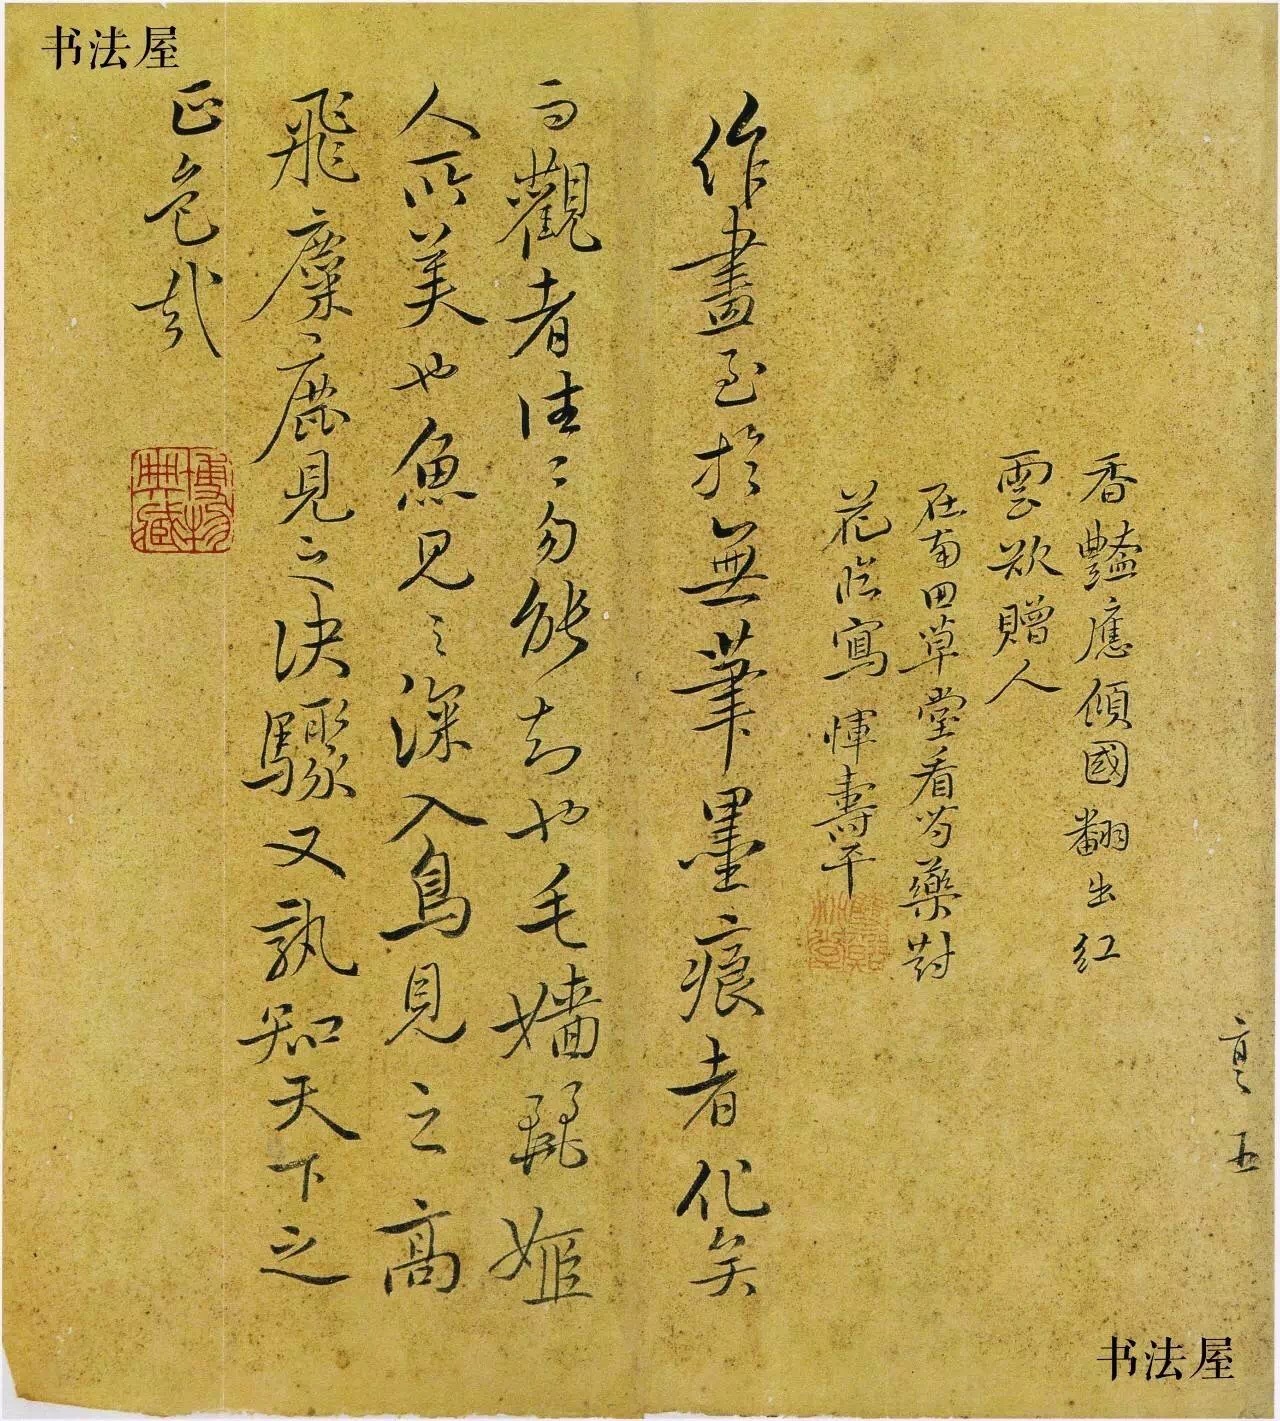 书法屋
五
香豔應傾國翻出紅
雲欲贈人
在南田草堂看芍藥對
花臨寫 惲壽平
作畫至於無筆墨痕者化矣
而觀者往〻勿能知也毛嬙麗姬
人所美也魚見之深入鳥見之高
飛麋鹿見之决驟又孰知天下之
正色哉
博物
典藏
书法屋